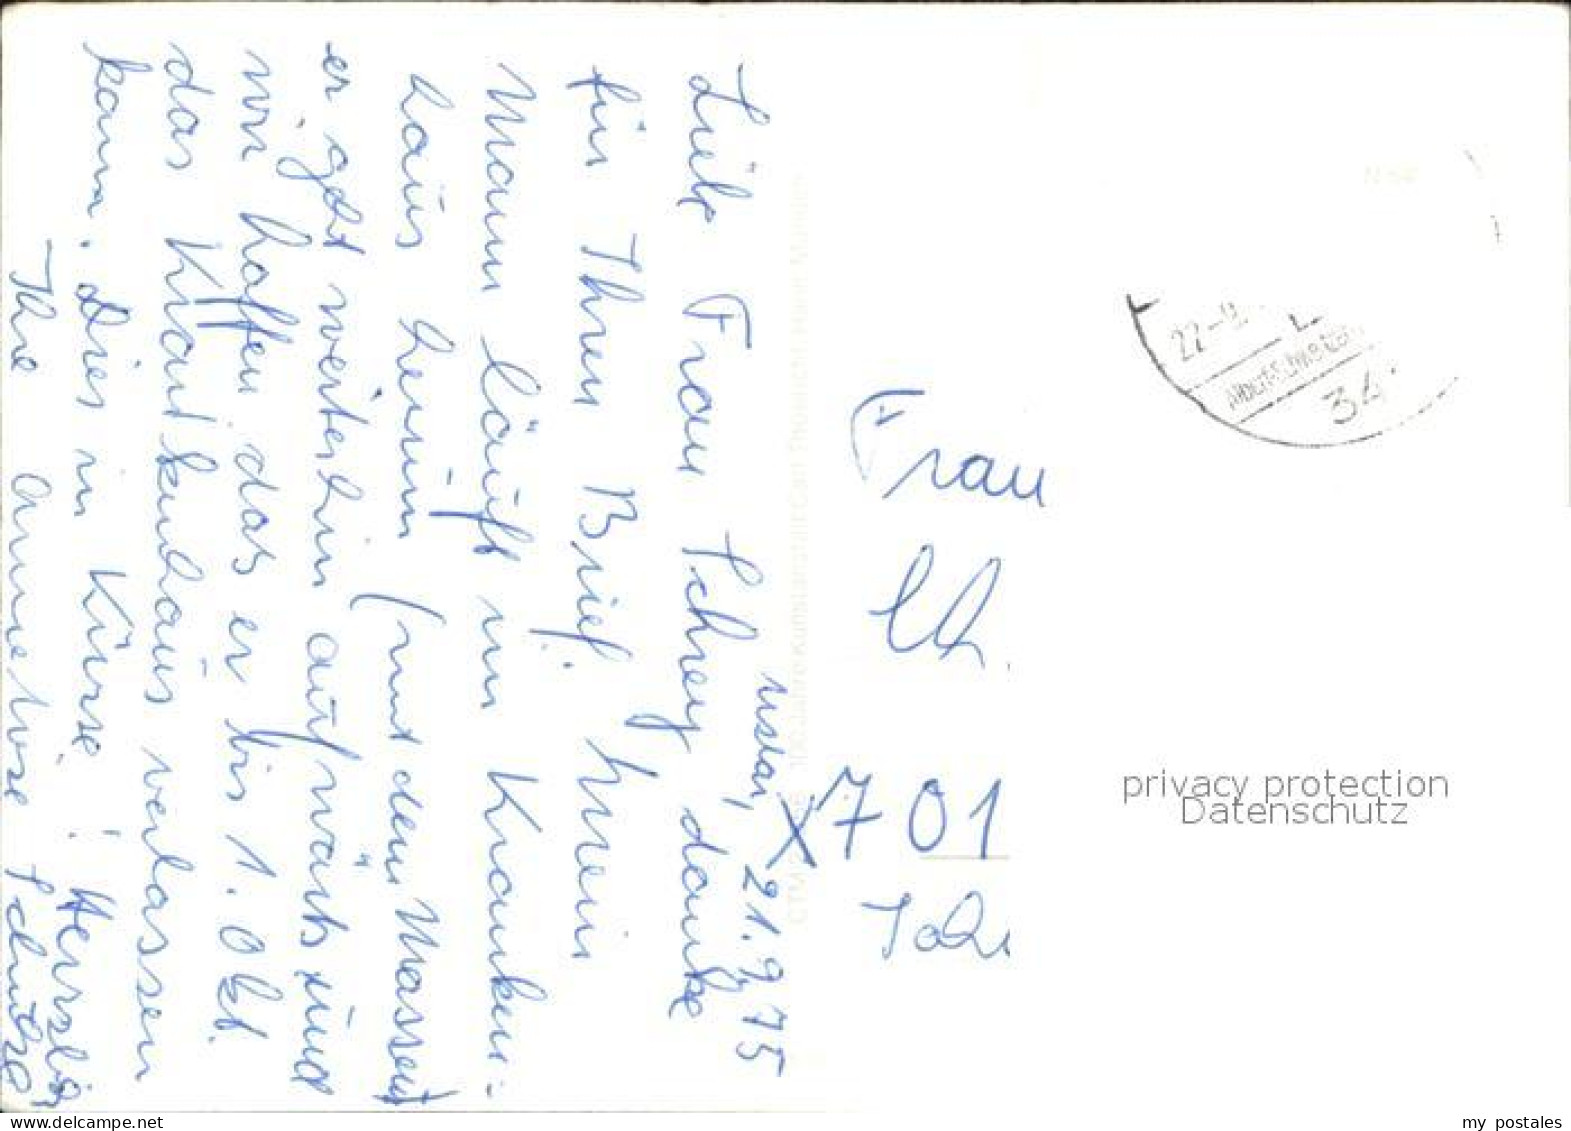 21.9.75
Liebe Frau Schrey danke
für Ihren Brief. Mein
Mann läuft im Kranken-
haus herum (mit dem Masseur)
er geht weiterhin aufwärts und
wir hoffen, das er bis 1. Okt.
das Krankenhaus verlassen
kann. Dies in Kürze! Herzlichst
Ihre Anneliese Schulze
Frau
Ch.
X701
22-9.
34
privacy protection
Datenschutz
oldthing.de
my_postales